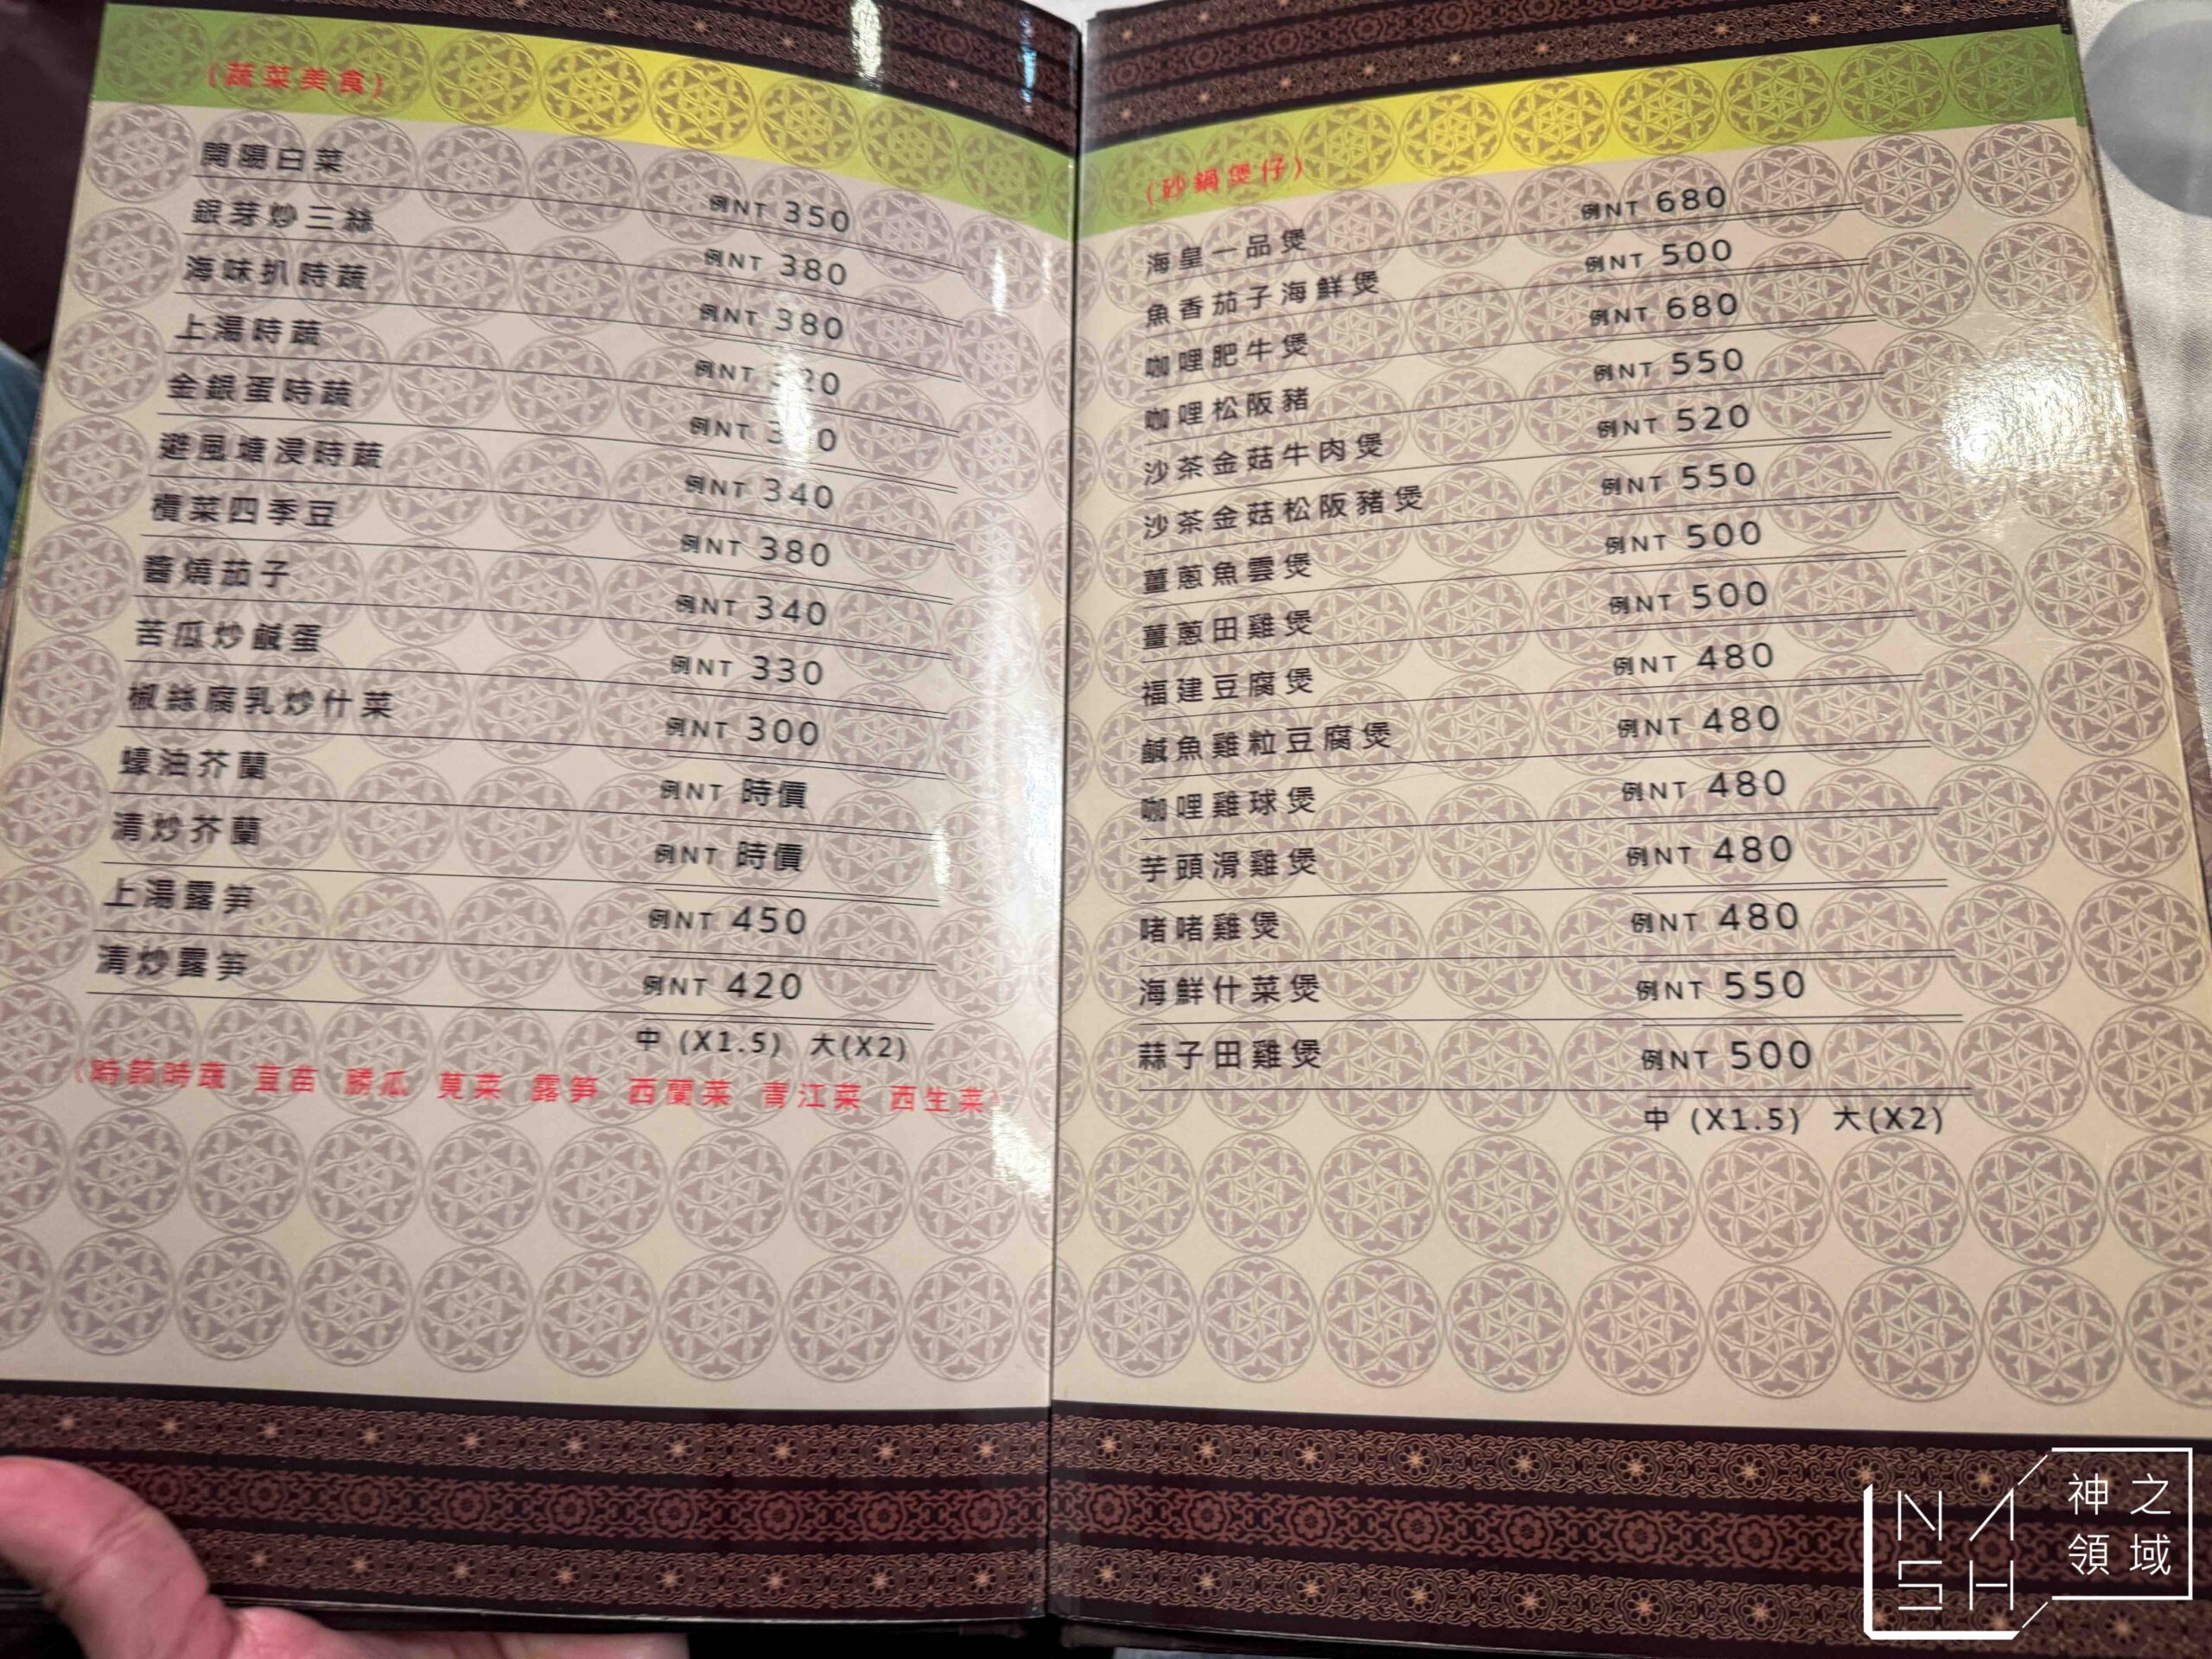 (蔬菜美食)
開陽白菜 例NT 350
銀芽炒三絲 例NT 380
海味扒時蔬 例NT 380
上湯時蔬 例NT
金銀蛋時蔬 例NT
避風塘浸時蔬 例NT 340
欖菜四季豆 例NT 380
醬燒茄子 例NT 340
苦瓜炒鹹蛋 例NT 330
椒絲腐乳炒什菜 例NT 300
蠔油芥蘭 例NT 時價
清炒芥蘭 例NT 時價
上湯露笋 例NT 450
清炒露笋 例NT 420
中 (X1.5) 大(X2)
(時節時蔬 豆苗 勝瓜 莧菜 露笋 西蘭菜 青江菜 西生菜)
(砂鍋煲仔)
海皇一品煲 例NT 680
魚香茄子海鮮煲 例NT 500
咖哩肥牛煲 例NT 680
咖哩松阪豬 例NT 550
沙茶金菇牛肉煲 例NT 520
沙茶金菇松阪豬煲 例NT 550
薑蔥魚雲煲 例NT 500
薑蔥田雞煲 例NT 500
福建豆腐煲 例NT 480
鹹魚雞粒豆腐煲 例NT 480
咖哩雞球煲 例NT 480
芋頭滑雞煲 例NT 480
啫啫雞煲 例NT 480
海鮮什菜煲 例NT 550
蒜子田雞煲 例NT 500
中 (X1.5) 大(X2)
NASH
神之
領域